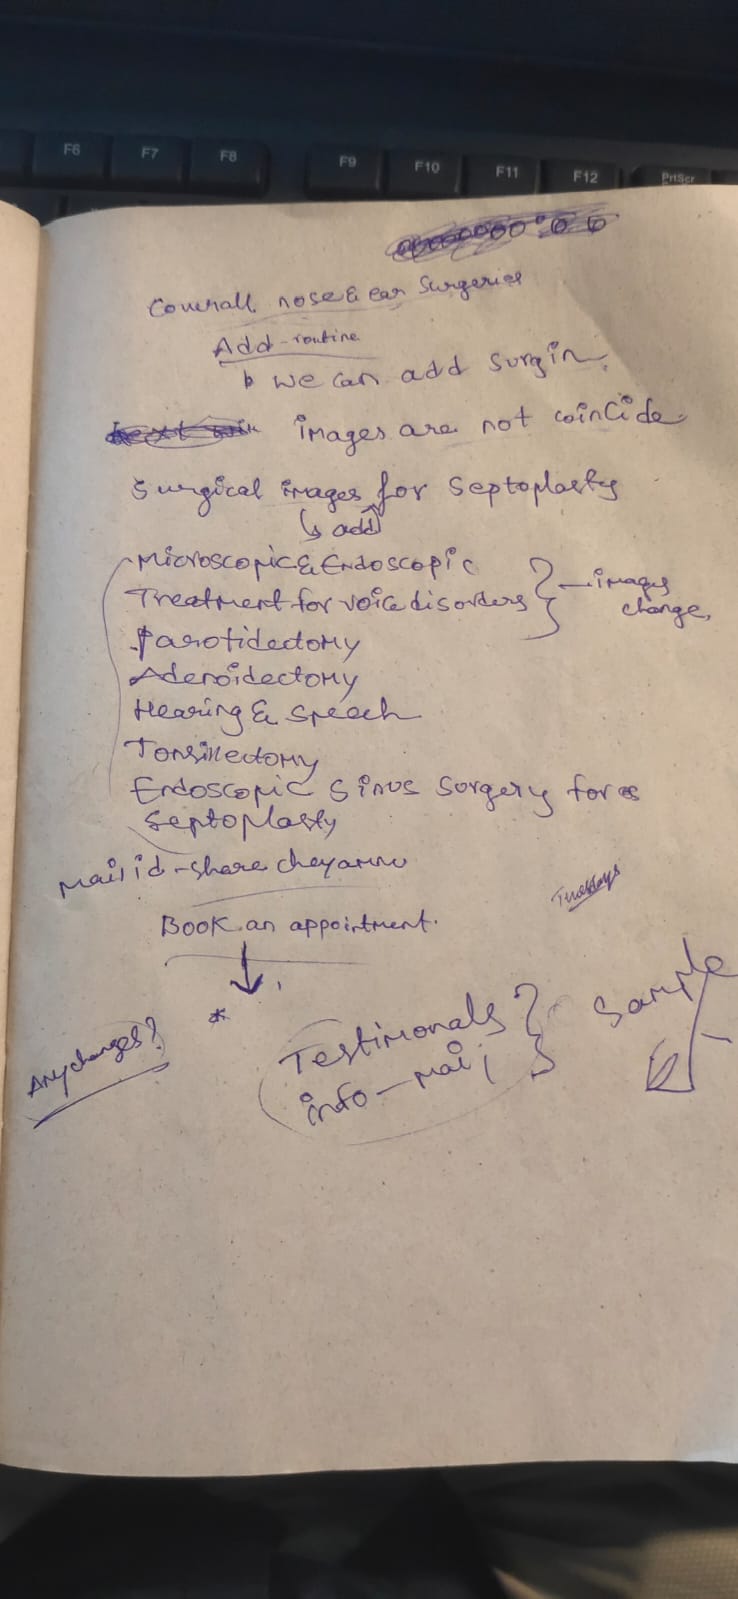 F6 F7 F8 F9 F10 F11 F12 PrtScr
nose & ear Surgeries
Add-routine
We can add
images are not coincide
Surgical images for Septoplasty
↳ add
Microscopic & Endoscopic
Treatment for voice disorders } – images change,
Parotidectomy
Adenoidectomy
Hearing & Speech
Tonsillectomy
Endoscopic Sinus Surgery for
Septoplasty
Mail id - share cheyamu
Tuesdays
Book an appointment.
Any changes?
* Testimonals } Sample
info - mail